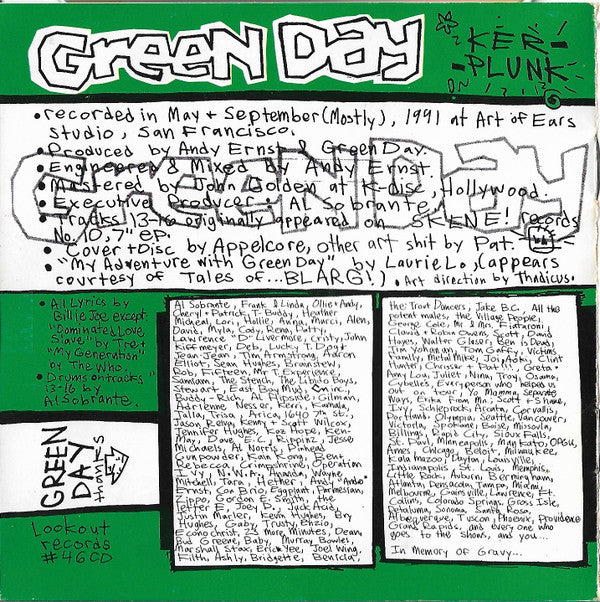 GREEN DAY
KER-
PLUNK
• recorded in May + September (Mostly), 1991 at Art of Ears
Studio, San Francisco.
• Produced by Andy Ernst & Green Day.
• Engineered & Mixed by Andy Ernst.
• Mastered by John Golden at K-disc, Hollywood.
• Executive Producer: Al Sobrante,
• Tracks 13-16 originally appeared on SKENE! records
No. 10, 7" ep.
• Cover + Disc by Appelcore, other art shit by Pat.
• "My Adventure with Green Day" by Laurie L., (appears
courtesy of Tales of...BLARG!) • Art direction by Thadicus.
GREEN DAY
• All Lyrics by
Billie Joe except:
"Dominated Love
Slave" by Tre +
"My Generation"
by The Who.
• Drums on tracks
13-16 by
Al Sobrante.
GREEN
DAY
THANKS
Lookout
records
#46CD
Al Sobrante, Frank & Linda, Ollie + Andy,
Cheryl + Patrick, T-Buddy, Heather
Micheal, Lori, Hollie, Anna, Marci, Alen,
David, Myla, Cody, Rena, Patty,
Lawrence "D" Livermore, Cristy, John
Kiffmeyer, Deb, Lucky T. Dog +
Jean-Jean, Tim Armstrong, Aaron
Elliott, Sean Hughes, Brainstew,
Rob, Fifteen, Mr. T Experience,
Samsam, The Stench, The Libido Boys,
Stewart, East Bay Mud, inc.,
Buddy-Rich, Al Flipside, Gilman,
Adrienne, Nesser, Kerri, Kamala,
Tally, Trisa, Arica, 16+16 7th st.
Jason Relny, Kenny + Scott Wilcox,
Jennifer Hughes, Koz Hope, Ken-
May, Dave E.C., Rippinz, Jesse
Michaels, Al Norris, Pinhead
Gunpowder, Sain Kong, Bent
Rebecca, Crimpshrine, Operation
Ivy, Al N.W., Amanda, Wayne
Mitchell, Tara, Hether, Andy "Ando"
Ernst, Cox Brio, Eggplant, Parmesian,
Zippo, Gordon E. the
Jeffer E., Joey D., Jack Acid,
Justin Marler, Kevin Hughes, Bry
Hughes, Gaby, Trusty, Enzio,
Econochrist, 23 more Minutes, Dean,
Bud Greene, Baby, Murray Bowles,
Marshall Stax, Eric Yee, Joel Wing,
Filth, Ashly, Bridgette, Benicia,
the: Trout Dancers, Jake B.C. All the
potent males, the Village People,
George Cole, Mr & Mrs. Fiataroni
Claudia + Robin Owens, Scott, David
Hayes, Walter Glaser, Ben is Dead,
Tim Yohannan, Tom Gaffy, Victims
Family, Metal Mike, Joi, Adk; Clint
Hunter, Chrissie + Pat M., Greta +
Amy Lou, Juliet, Nina, Troy, Osama,
Corbelles, Everyperson who helped us
out on tour, Yo Momma, separate
Ways, Erika from Mr., Scott + Shane,
Ivy, Schleprock; Arcata, Corvalis,
Portland, Olympia, Seattle, Vancouver,
Victoria, Spokane, Boise, Missoula,
Billings, Rapid City, Sioux Falls,
St. Paul, Minneapolis, Mankato, OASU,
Ames, Chicago, Beloit, Milwaukee,
Kalamazoo, Dayton, Louisville,
Indianapolis, St. Louis, Memphis,
Little Rock, Auburn, Bermingham,
Atlanta, Pensacola, Tampa, Miami,
Melbourne, Gainsville, Lawrence, Ft.
Collins, Colorado Springs, Grass Isle,
Petaluma, Sonoma, Santa Rosa,
Alberquerque, Tuscon, Phoenix, Providence
Grand Rapids, and every one who
goes to the shows, and you...
In Memory of Gravy...